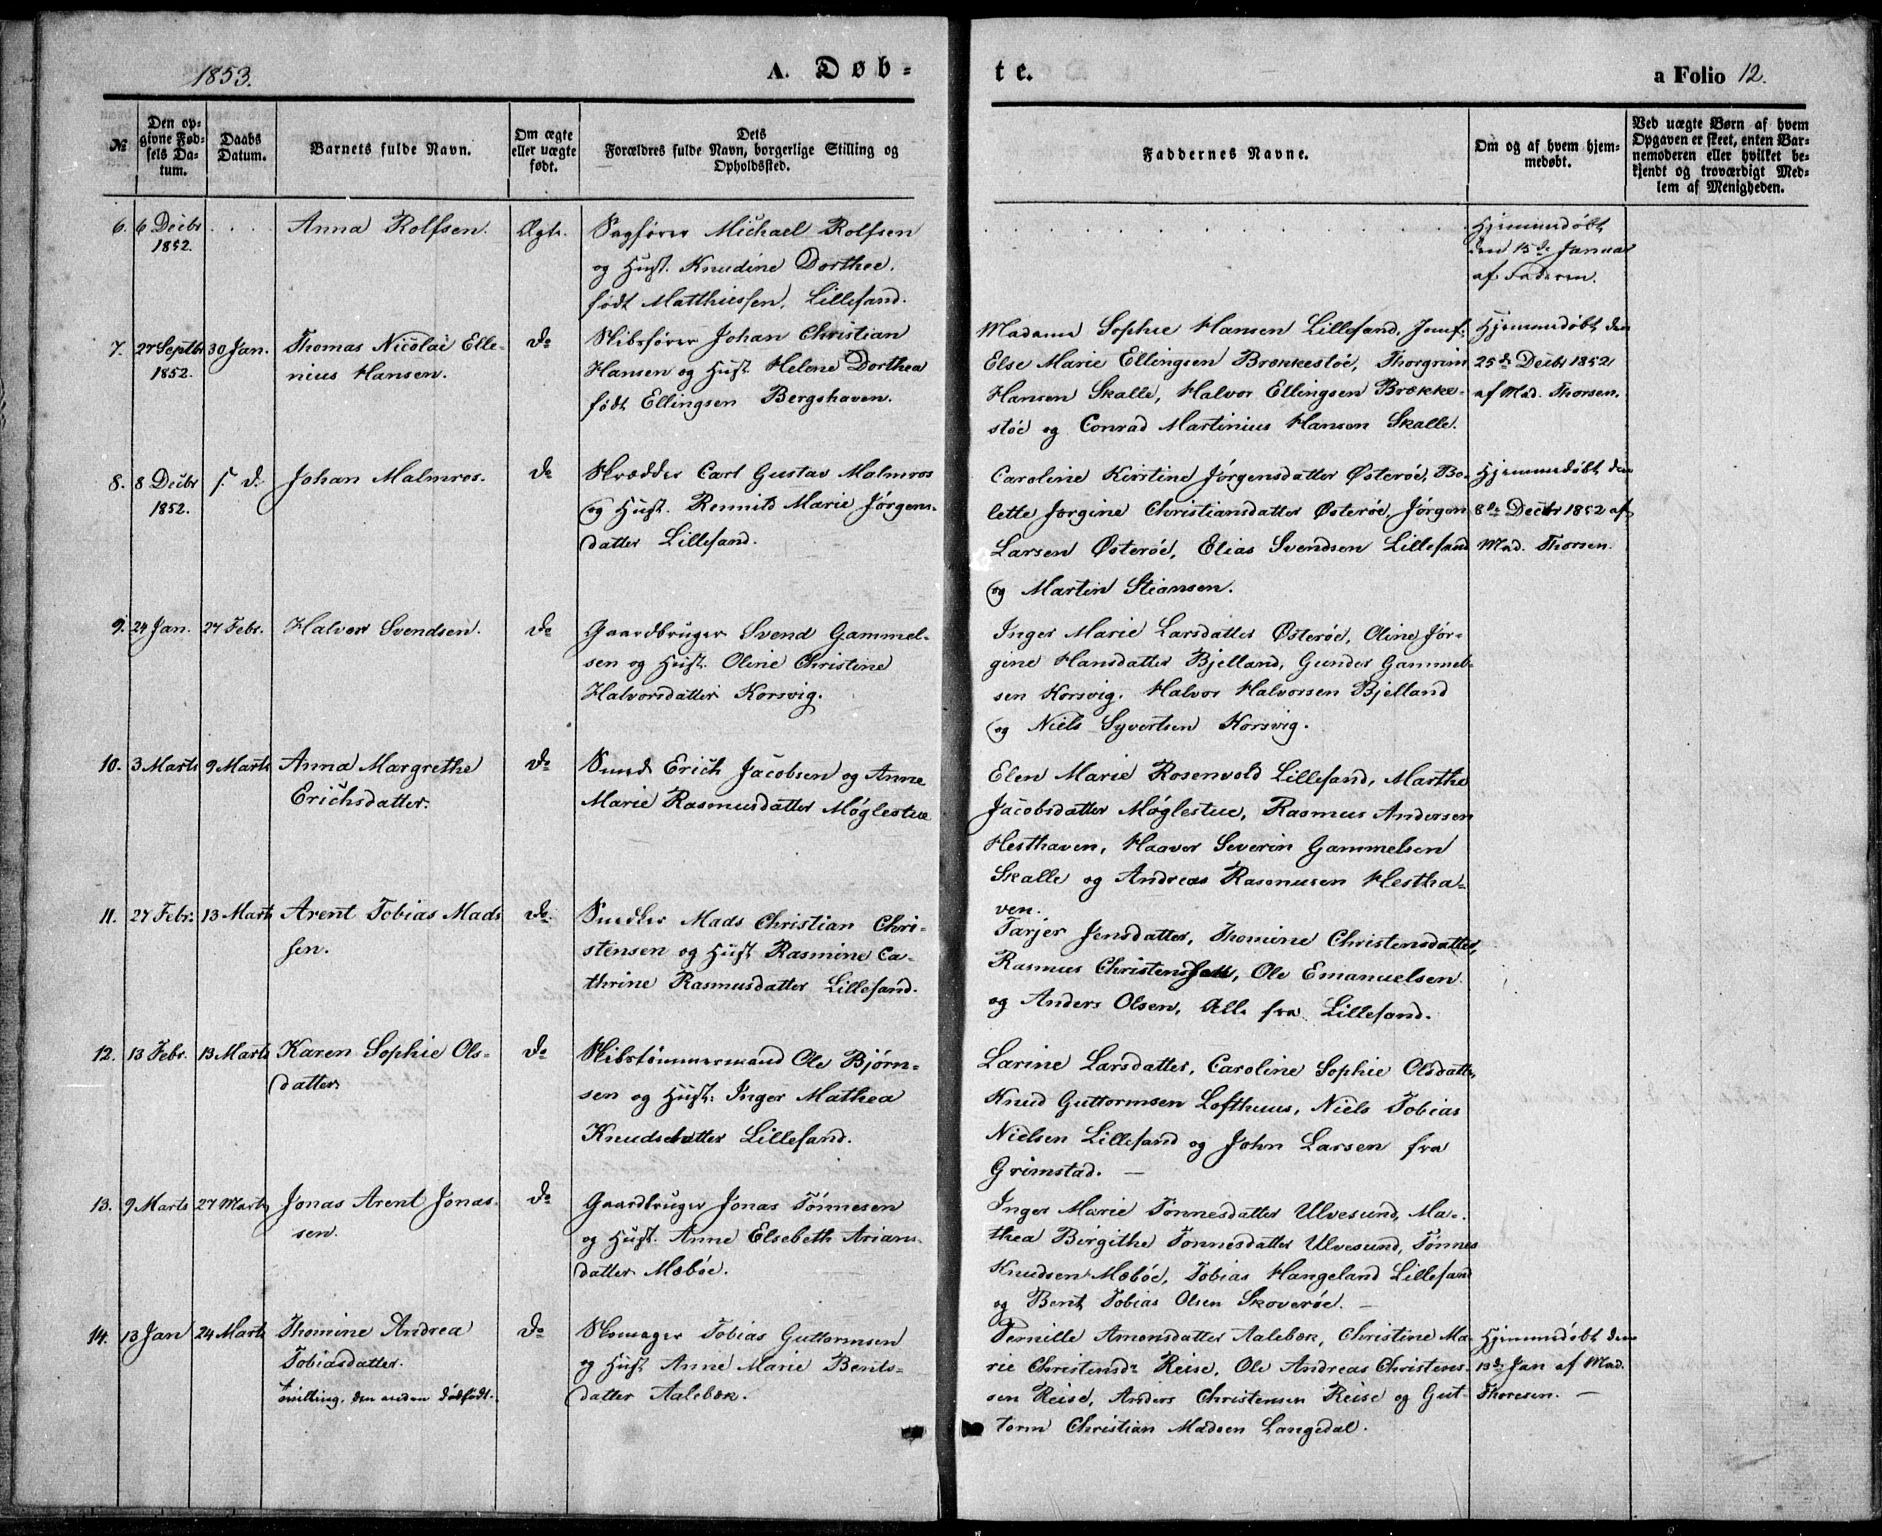 1853.
A. Døb-
te.
a Folio 12.
№
Den op-
givne Fød-
sels Da-
tum.
Daabs
Datum.
Barnets fulde Navn.
Om ægte
eller uægte
født.
Dets
Forældres fulde Navn, borgerlige Stilling og
Opholdssted.
Faddernes Navne.
Om og af hvem hjem-
medøbt.
Ved uægte Børn af hvem
Opgaven er skeet, enten Bar-
nemoderen eller hvilket be-
kjendt og troværdigt Med-
lem af Menigheden.
6. 6 Decbr
1852.
. . . .
Anna Rolfsen.
Ægte.
Sagfører Michael Rolfsen
og Hust. Knudine Dorthee.
født Matthiessen, Lillesand.
Hjemmedøbt
den 15de Januar
af Faderen.
7. 27 Septbr
1852.
30 Jan.
Thomas Nicolai Elle-
nius Hansen.
do
Skibsfører Johan Christian
Hansen og Hust. Helene Dorthea
født Ellingsen Bergshaven.
Madame Sophie Hansen Lillesand, Jomf.
Else Marie Ellingsen Brækkestøe, Thorgrim
Hansen Skalle, Halvor Ellingsen Brække-
støe og Conrad Martinius Hansen Skalle.
Hjemmedøbt den
25de Decbr 1852
af Mad. Thorsen.
8. 8 Decbr
1852.
s. d.
Johan Malmros.
do
Skrædder Carl Gustav Malmros
og Hust. Rennild Marie Jørgens-
datter Lillesand.
Caroline Kirstine Jørgensdatter Østerøe, Bo-
lette Jørgine Christiansdatter Østerøe, Jørgen
Larsen Østerøe, Elias Svendsen Lillesand
og Martin Stiansen.
Hjemmedøbt den
8de Decbr 1852 af
Mad. Thorsen.
9. 24 Jan.
27 Febr.
Halvor Svendsen.
do
Gaardbruger Svend Gammel-
sen og Hust. Oline Christine
Halvorsdatter Korsvig.
Inger Marie Larsdatter Østerøe, Oline Jør-
gine Hansdatter Bjelland, Gunder Gammel-
sen Korsvig. Halvor Halvorsen Bjelland
og Niels Syvertsen Korsvig.
10. 3 Marts
9 Marts
Anna Margrethe
Erichsdatter.
do
Smed Erich Jacobsen og Anne
Marie Rasmusdatter Møglestue
Elen Marie Rosenvold Lillesand, Marthe
Jacobsdatter Møglestue, Rasmus Andersen
Hesthaven, Haaver Severin Gammelsen
Skalle og Andreas Rasmusen Hestha-
ven.
11. 27 Febr.
13 Marts
Arent Tobias Mads
sen.
do.
Snedker Mads Christian Chri-
stensen og Hust Rasmine Ca-
thrine Rasmusdatter Lillesand.
Tarjer Jensdatter, Thomine Christensdatter,
Rasmus Christensen, Ole Emanuelsen
og Anders Olsen, Alle fra Lillesand.
12. 13 Febr.
13 Marts
Karen Sophie Ols-
datter
do
Skibstømmermand Ole Bjørn-
sen og Hust: Inger Mathea
Knudsdatter Lillesand.
Larine Larsdatter, Caroline Sophie Olsdatter,
Knud Guttormsen Lofthuus, Niels Tobias
Nielsen Lillesand og John Larsen fra
Grimstad. —
13. 9 Marts
27 Marts
Jonas Arent Jonas-
sen.
do
Gaardbruger Jonas Tønnesen
og Hust. Anne Elsebeth Arians-
datter Mæbøe.
Inger Marie Tønnesdatter Ulvesund, Ma-
thea Birgithe Tønnesdatter Ulvesund, Tønnes
Knudsen Mæbøe, Tobias Hangeland Lillesand
og Bent Tobias Olsen Skoverøe. —
14. 13 Jan
24 Marts
Thomine Andrea
Tobiasdatter.
Tvilling, den anden dødfødt.
do
Skomager Tobias Guttormsen
og Hust Anne Marie Bents-
datter Aalebæk.
Pernille Amonsdatter Aalebæk, Christine Ma-
rie Christensdr Reise, Ole Andreas Christens-
sen Reise, Anders Christensen Reise og Gut-
torm Christian Madsen Langedal.
Hjemmedøbt den
13de Jan af Mad.
Thoresen. —